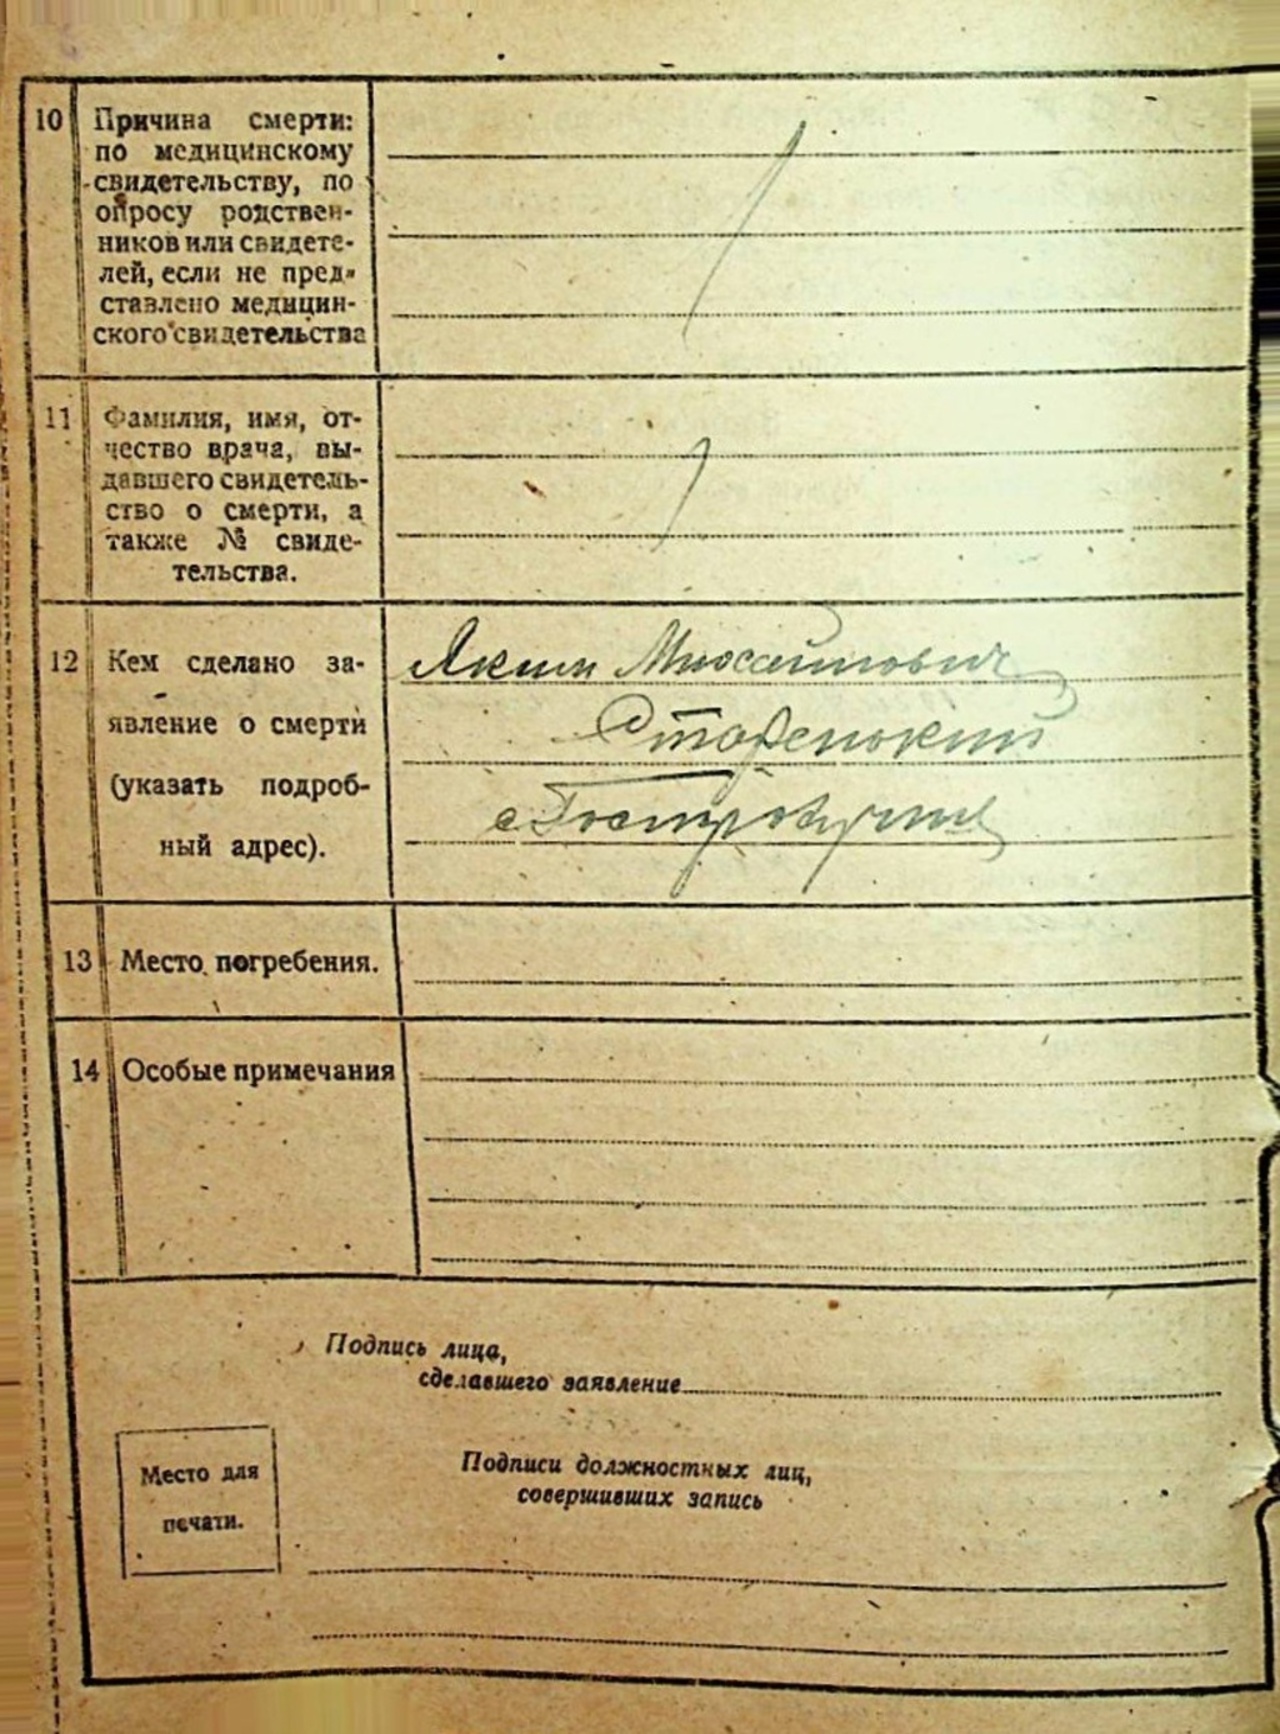 10 Причина смерти:
по медицинскому
свидетельству, по
опросу родствен-
ников или свидете-
лей, если не пред-
ставлено медицин-
ского свидетельства
11 Фамилия, имя, от-
чество врача, вы-
давшего свидетель-
ство о смерти, а
также № свиде-
тельства.
12 Кем сделано за-
явление о смерти
(указать подроб-
ный адрес).
Яким Михайлович
с
13 Место погребения.
14 Особые примечания
Подпись лица,
сделавшего заявление
Место для
печати.
Подписи должностных лиц,
совершивших запись